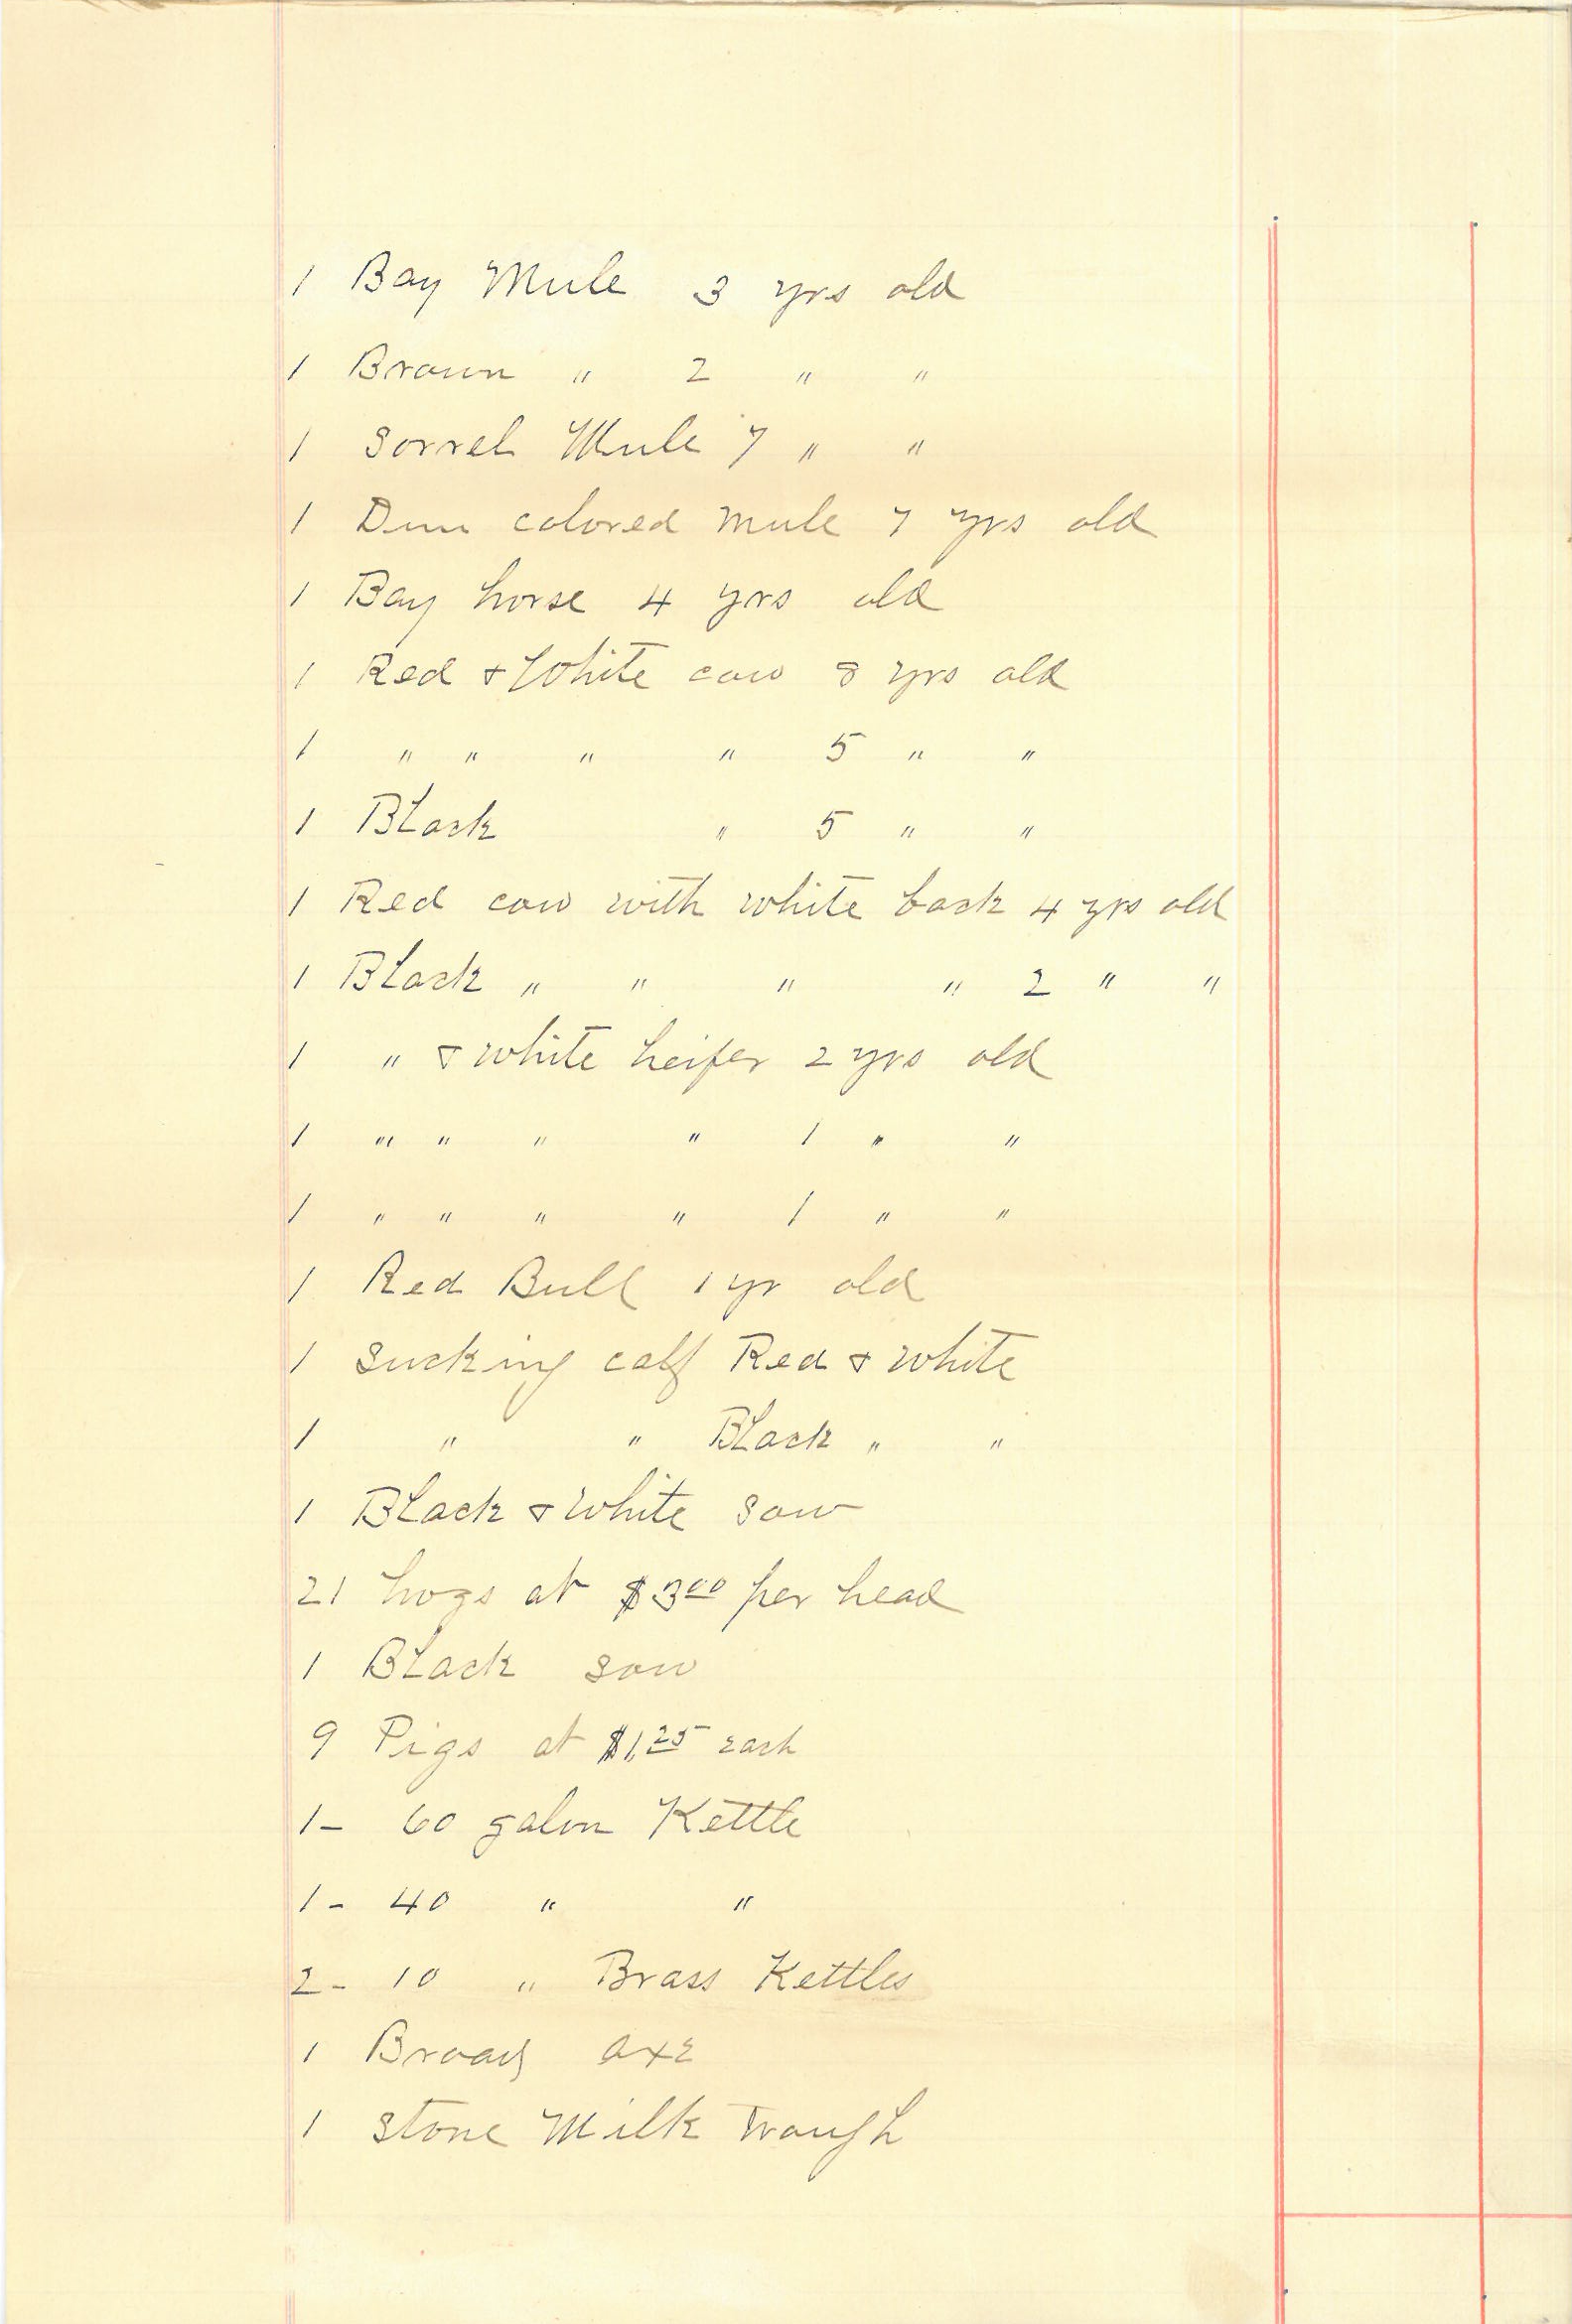 1 Bay Mule 3 yrs old
1 Brown " 2 " "
1 Sorrel Mule 7 " "
1 Dun colored mule 7 yrs old
1 Bay horse 4 yrs old
1 Red & White cow 8 yrs old
1 " " " " 5 " "
1 Black " 5 " "
1 Red cow with white back 4 yrs old
1 Black " " " " 2 " "
1 " & white heifer 2 yrs old
1 " " " " 1 " "
1 " " " " 1 " "
1 Red Bull 1 yr old
1 Sucking calf Red & white
1 " " Black " "
1 Black & white Sow
21 hogs at $3.00 per head
1 Black sow
9 Pigs at $1.25 each
1- 60 galon Kettle
1- 40 " "
2- 10 " Brass Kettles
1 Broad axe
1 Stone Milk Trough